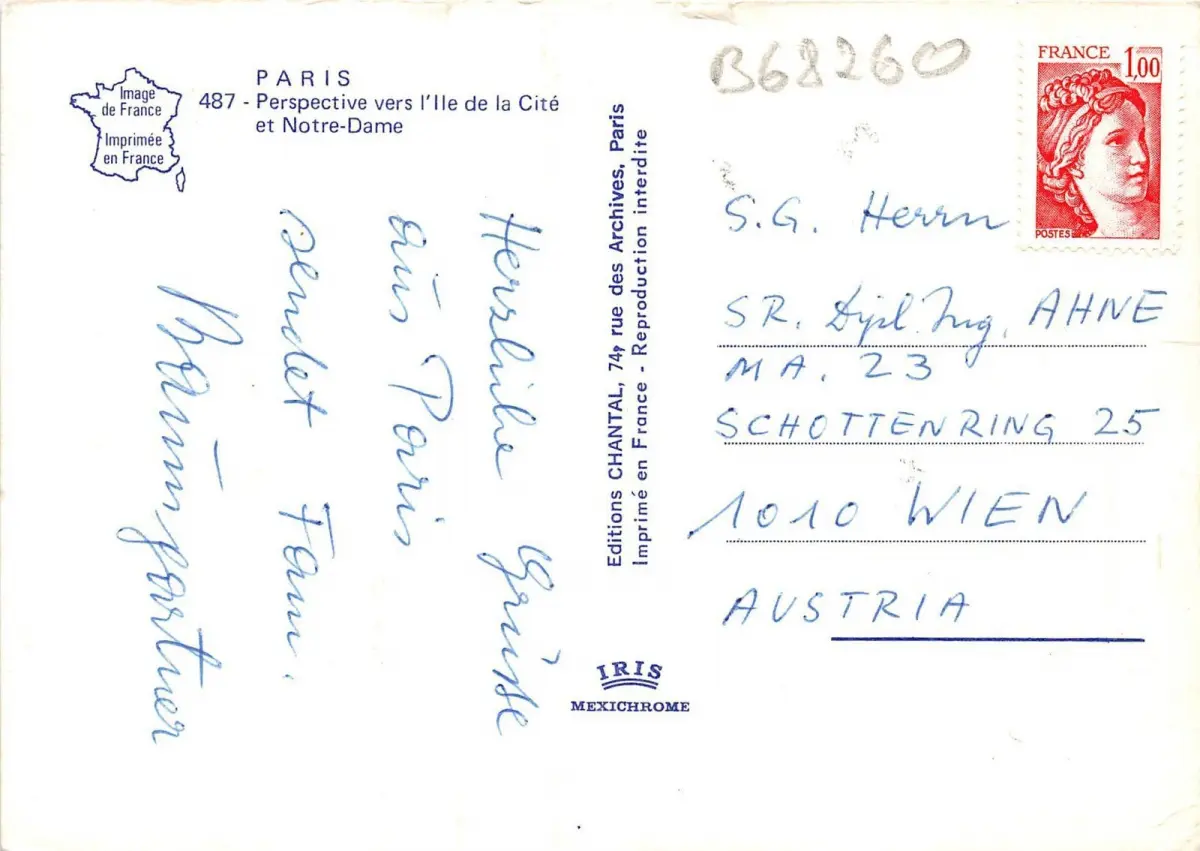 Image
de France
Imprimée
en France
PARIS
487 - Perspective vers l'Ile de la Cité
et Notre-Dame
Herzliche Grüsse
aus Paris
sendet Fam.
Baumgartner
Editions CHANTAL, 74, rue des Archives, Paris
Imprimé en France - Reproduction interdite
IRIS
MEXICHROME
B68260
FRANCE 1,00
POSTES
S.G. Herrn
SR. Dipl. Ing. AHNE
MA. 23
SCHOTTENRING 25
1010 WIEN
AUSTRIA